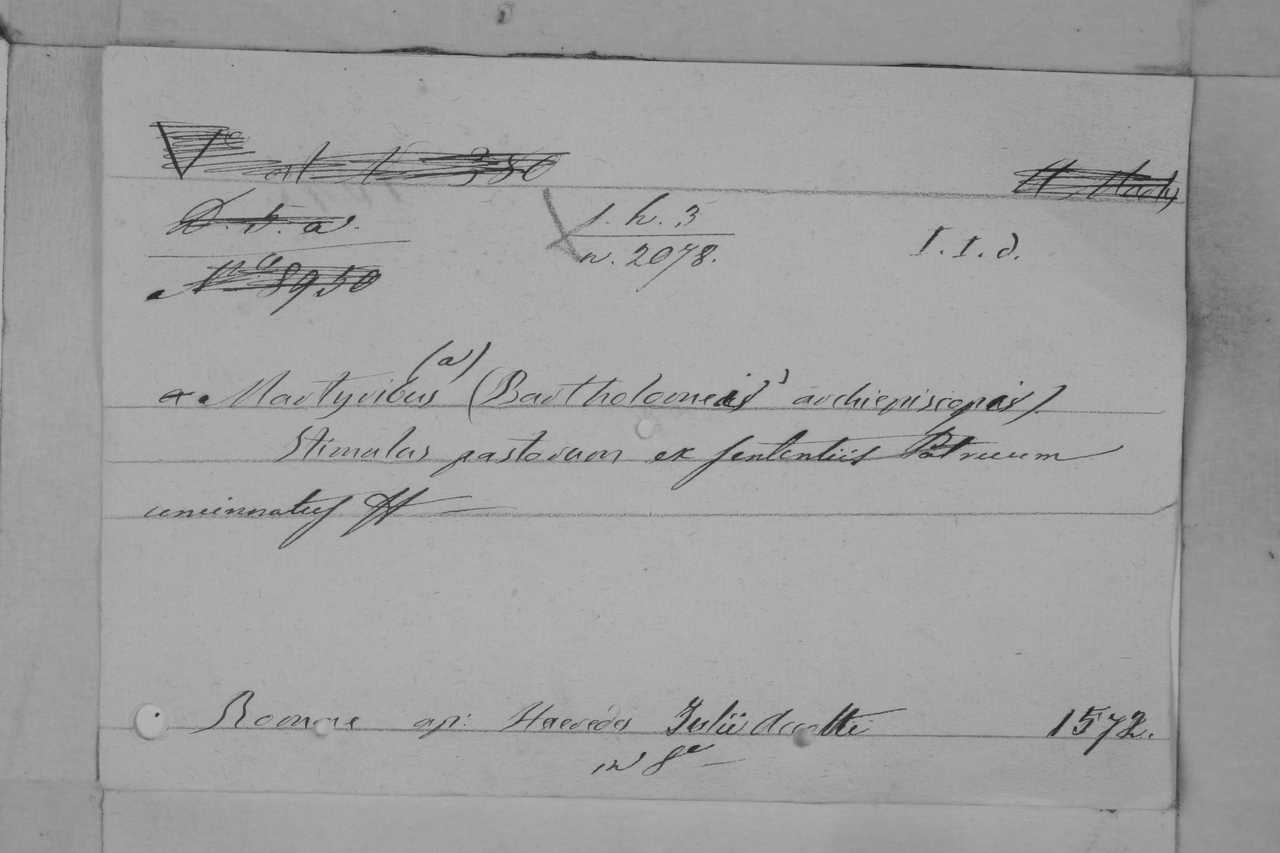 350
D. t. a.
f. h. 3
n. 2078.
I. I. d.
8950
(a)
a Martyribus (Bartholomeis archiepiscopis).
Stimulus pastorum ex sententiis Patruum
concinnatus
Romae ap: Haeredes Julii Accolti 1572.
in 8e